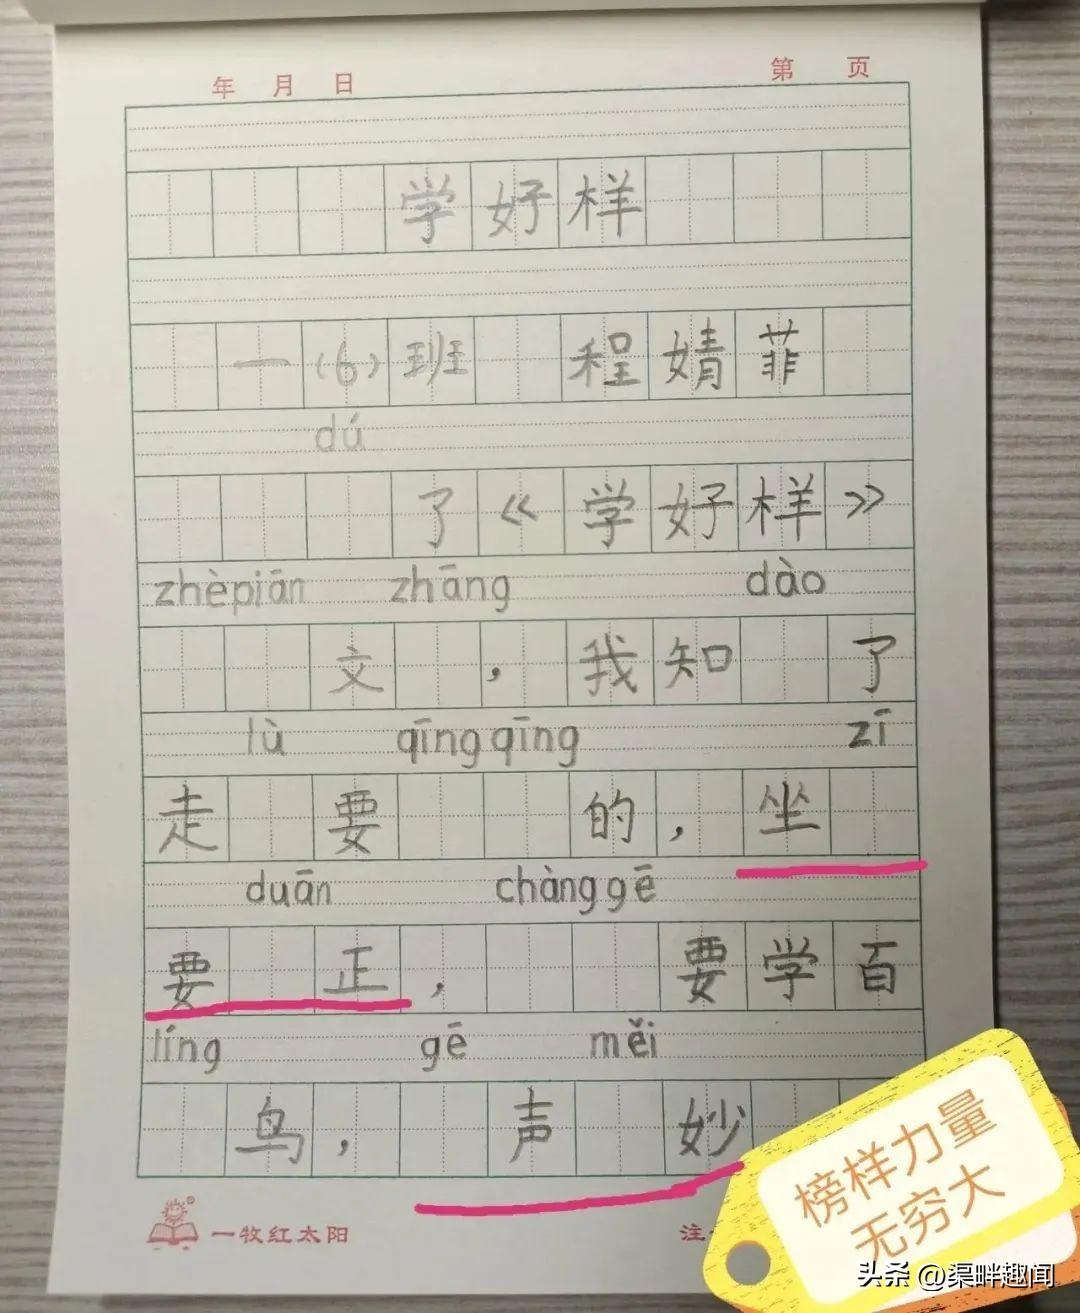 年 月 日 第 页
学好样
一(6)班 程婧菲
dú
了《学好样》
zhèpiān zhāng dào
文，我知了
lù qīngqīng zī
走要的，坐
duān chànggē
要正，要学百
líng gē měi
鸟，声妙
一牧红太阳 注
榜样力量
无穷大
头条 @渠畔趣闻